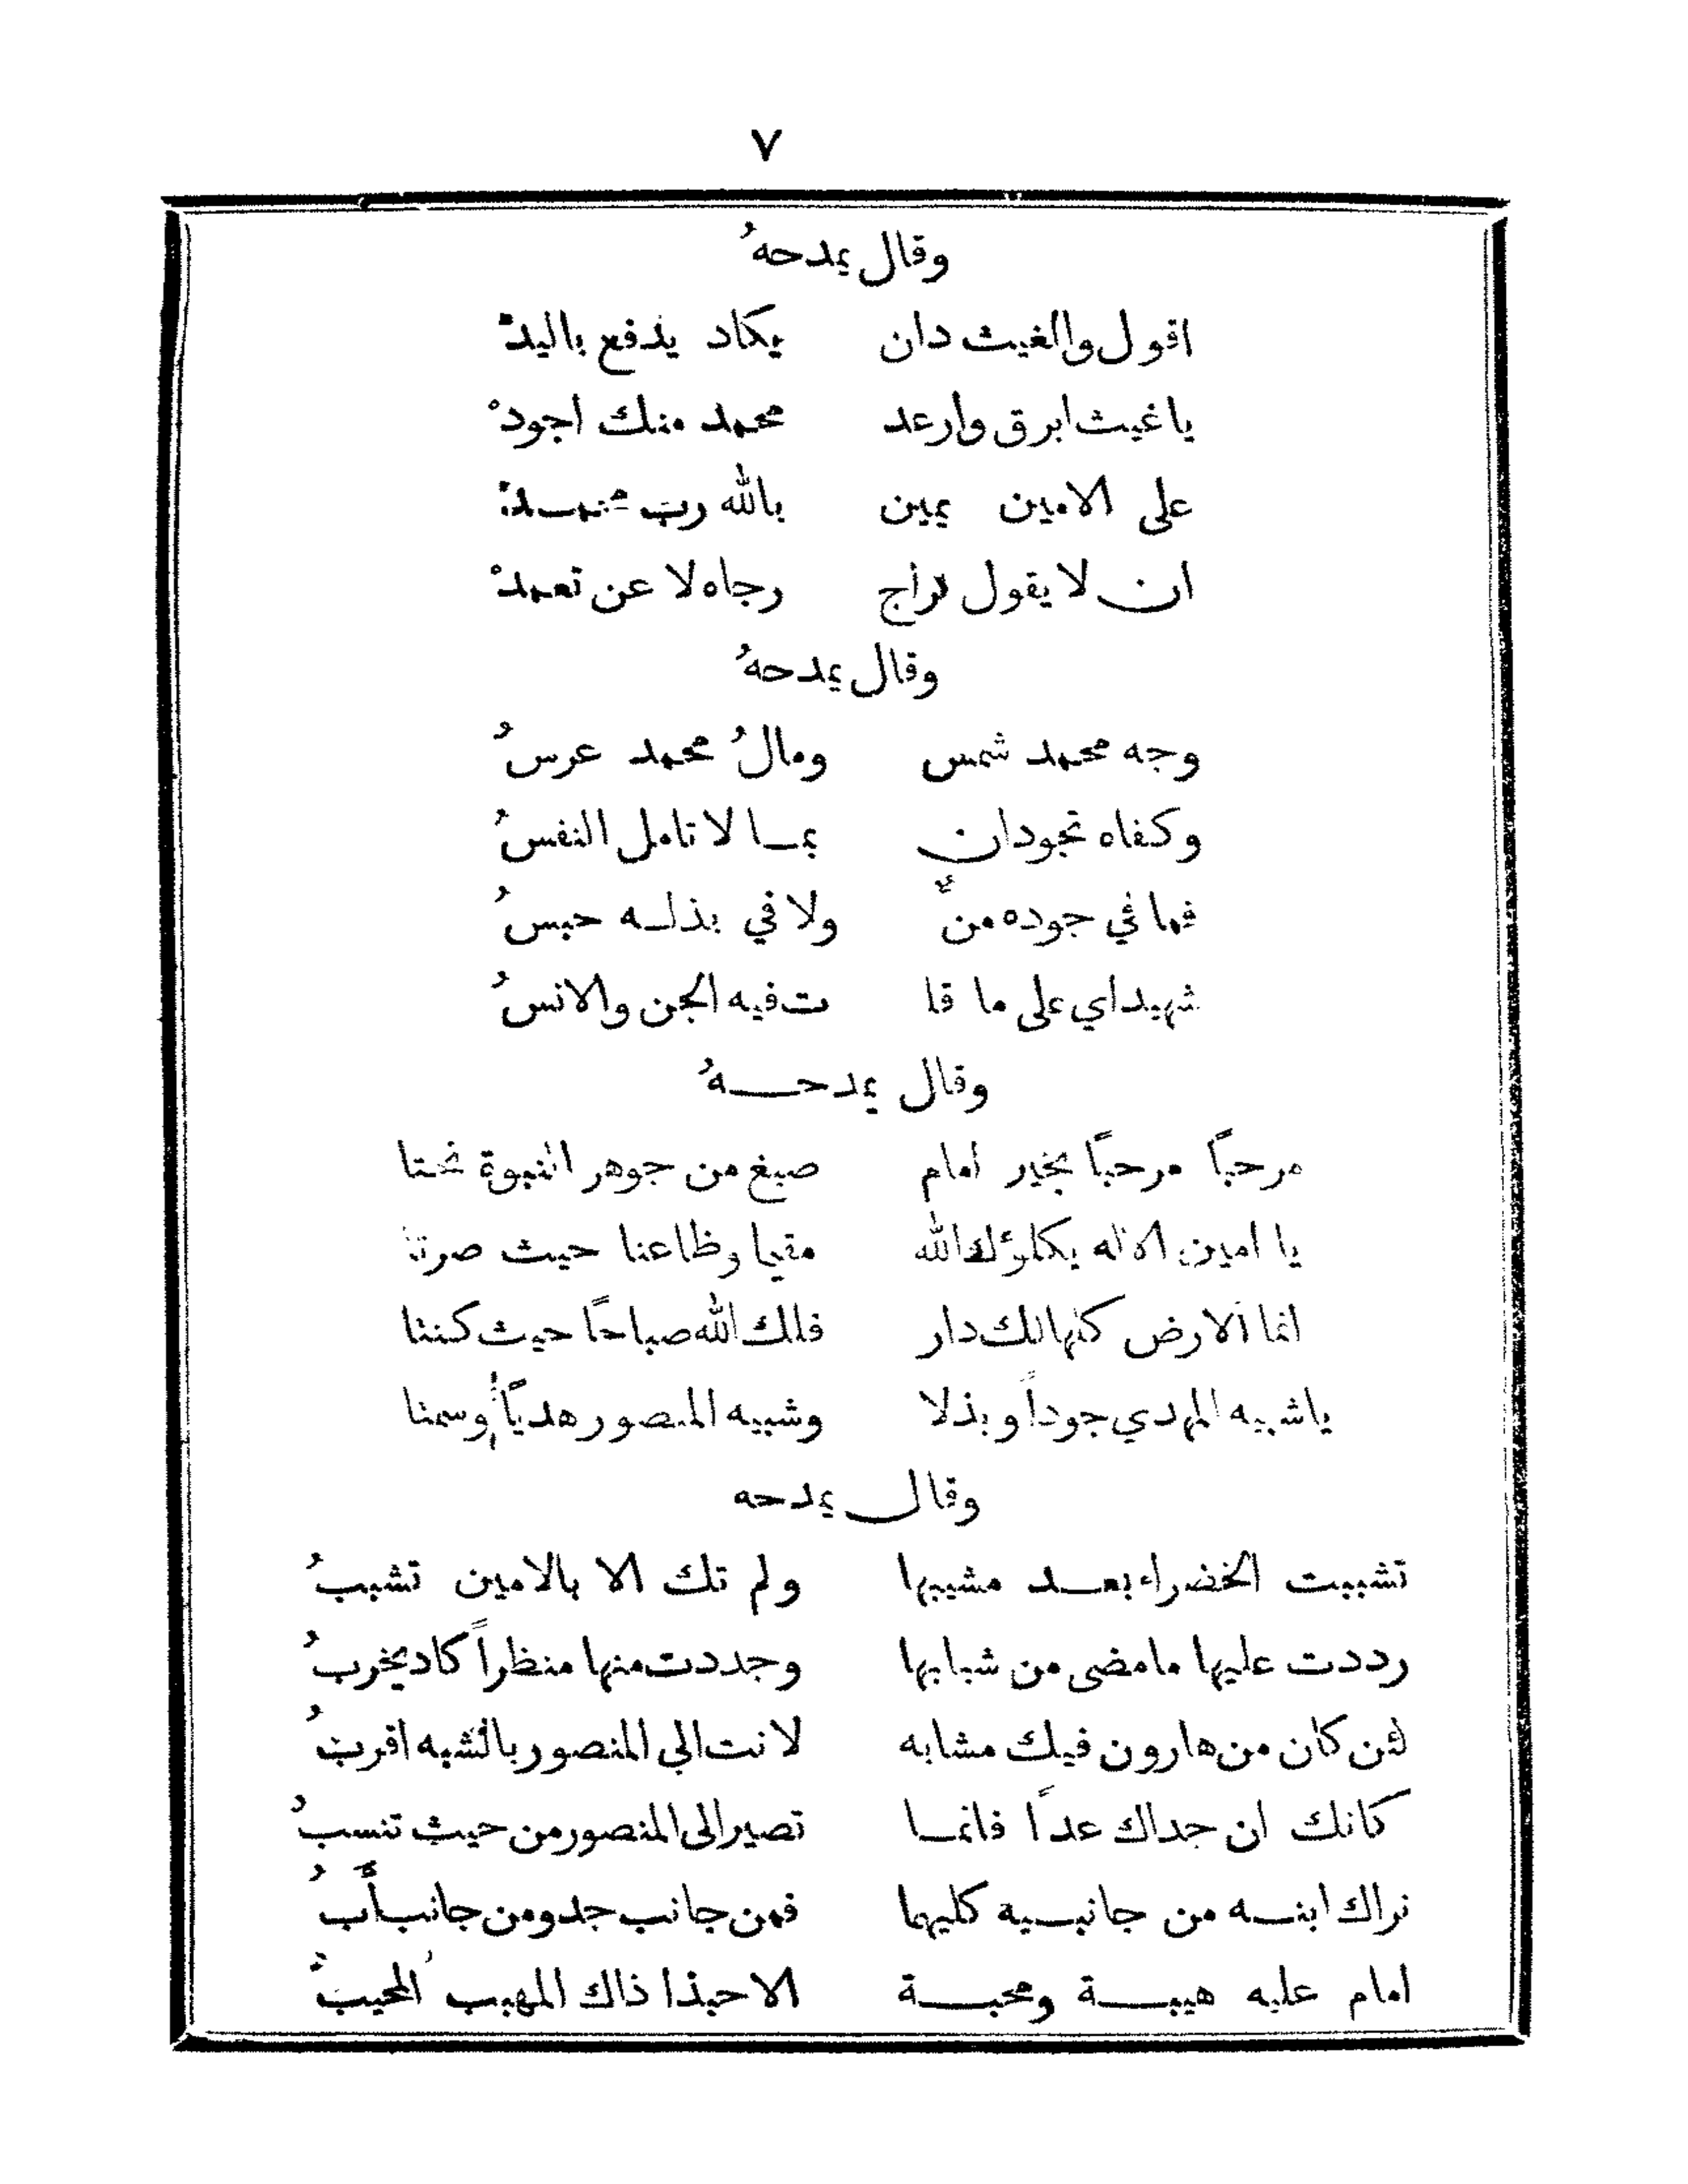 ٧
وقال يمدحهُ
اقول والغيث دان يكاد يدفع باليدْ
يا غيث ابرق وارعد محمد منك اجودْ
على الامين يمين بالله رب محمدْ
ان لا يقول لراج رجاه لا عن تعمدْ
وقال يمدحهُ
وجه محمد شمس ومالُ محمد عرسُ
وكفاه تجودان بمــا لا تامل النفسُ
فما في جوده منٌّ ولا في بذلـه حبسُ
شهيداي على ما قا ت فيه الجن والانسُ
وقال يمدحــهُ
مرحبًا مرحبًا بخير امام صيغ من جوهر النبوة نحتا
يا امين الاله يكلوئك الله مقيما وظاعنا حيث صرتا
انما الارض كلها لك دار فلك الله صباحًا حيث كنتا
يا شبيه المهدي جوداً وبذلا وشبيه المنصور هديًا وسمتا
وقال يمدحه
تشببت الخضراء بعـد مشيبها ولم تك الا بالامين تشببُ
رددت عليها ما مضى من شبابها وجددت منها منظراً كاد يخربُ
لئن كان من هارون فيك مشابه لانت الى المنصور بالشبه اقربُ
كانك ان جداك عدا فانمــا تصير الى المنصور من حيث تنسبُ
نراك ابنـه من جانبـيه كليهما فمن جانب جد ومن جانب أبُ
امام عليه هيبــة ومحبــة الا حبذا ذاك المهيب المحببُ